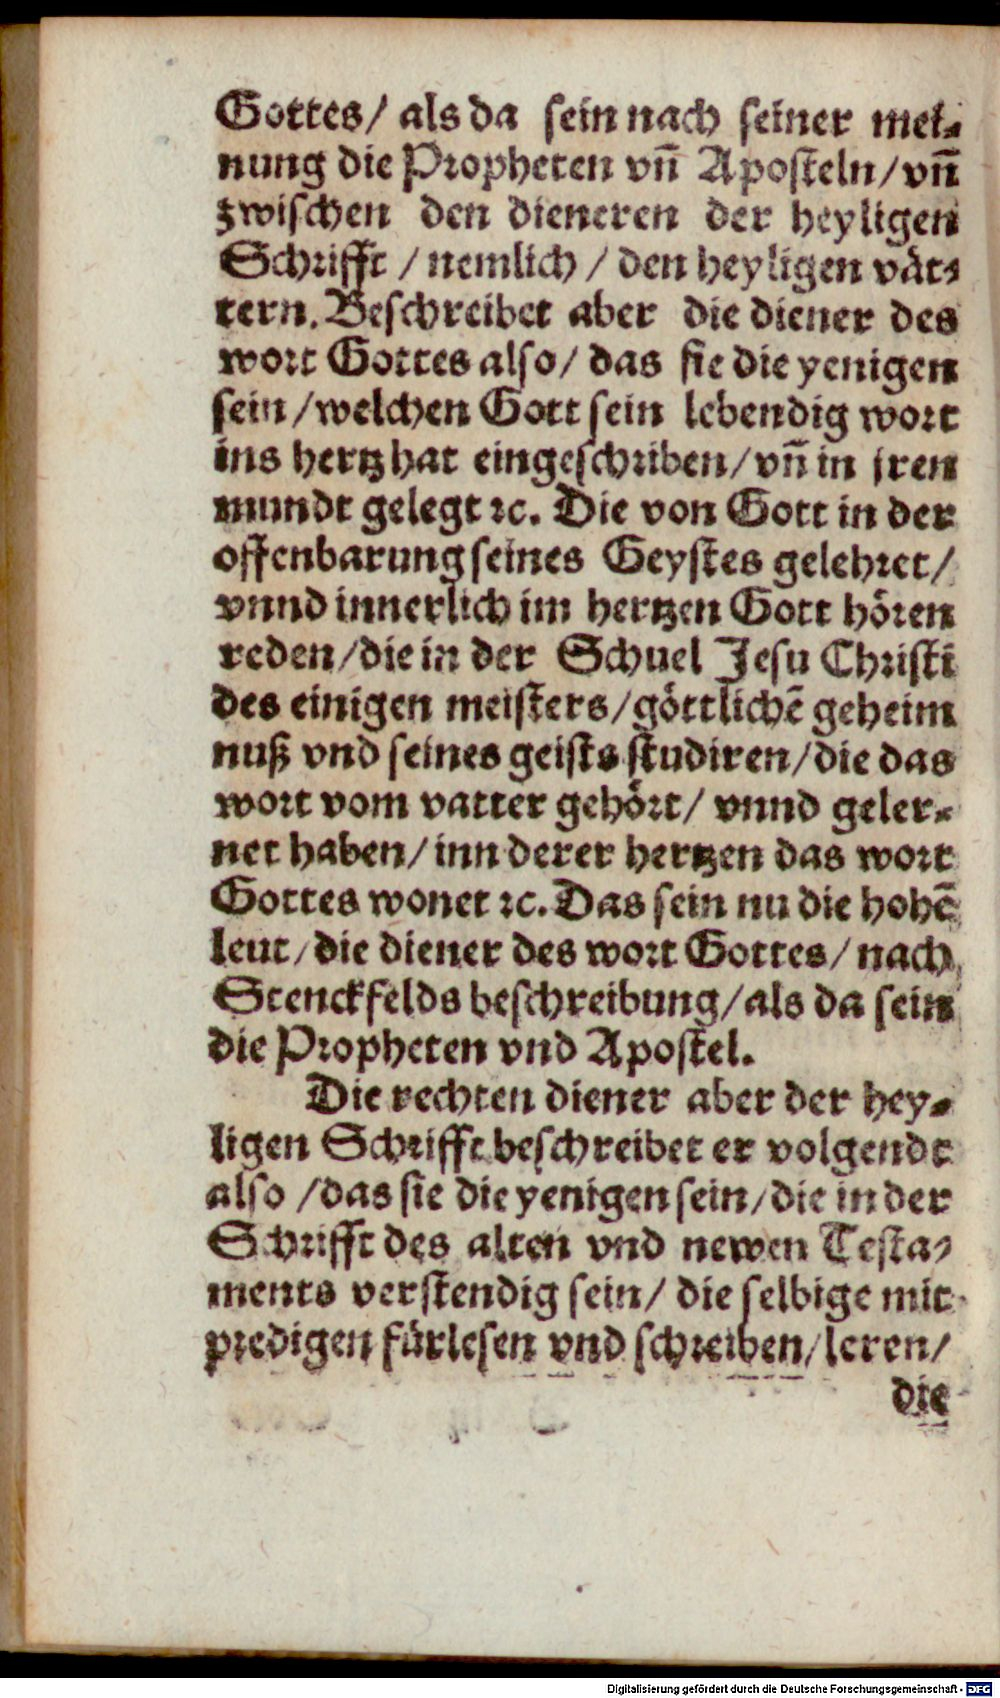 Gottes/ als da sein nach seiner mei-
nung die Propheten vñ Aposteln/ vñ
zwischen den dieneren der heyligen
Schrifft / nemlich / den heyligen våt-
tern. Beschreibet aber die diener des
wort Gottes also/ das sie die yenigen
sein / welchen Gott sein lebendig wort
ins hertz hat eingeschriben/ vñ in jren
mundt gelegt ꝛc. Die von Gott in der
offenbarung seines Geystes gelehret/
vnnd innerlich im hertzen Gott hören
reden/die in der Schuel Jesu Christi
des einigen meisters/göttlichē geheim
nuß vnd seines geists studiren/die das
wort vom vatter gehört/ vnnd geler-
net haben/ inn derer hertzen das wort
Gottes wonet ꝛc. Das sein nu die hohē
leut/die diener des wort Gottes/ nach
Stenckfelds beschreibung/als da sein
die Propheten vnd Apostel.
Die rechten diener aber der hey-
ligen Schrifft beschreibet er volgendt
also /das sie die yenigen sein/die in der
Schrifft des alten vnd newen Testa-
ments verstendig sein/ die selbige mit
predigen fürlesen vnd schreiben/leren/
die
Digitalisierung gefördert durch die Deutsche Forschungsgemeinschaft - DFG